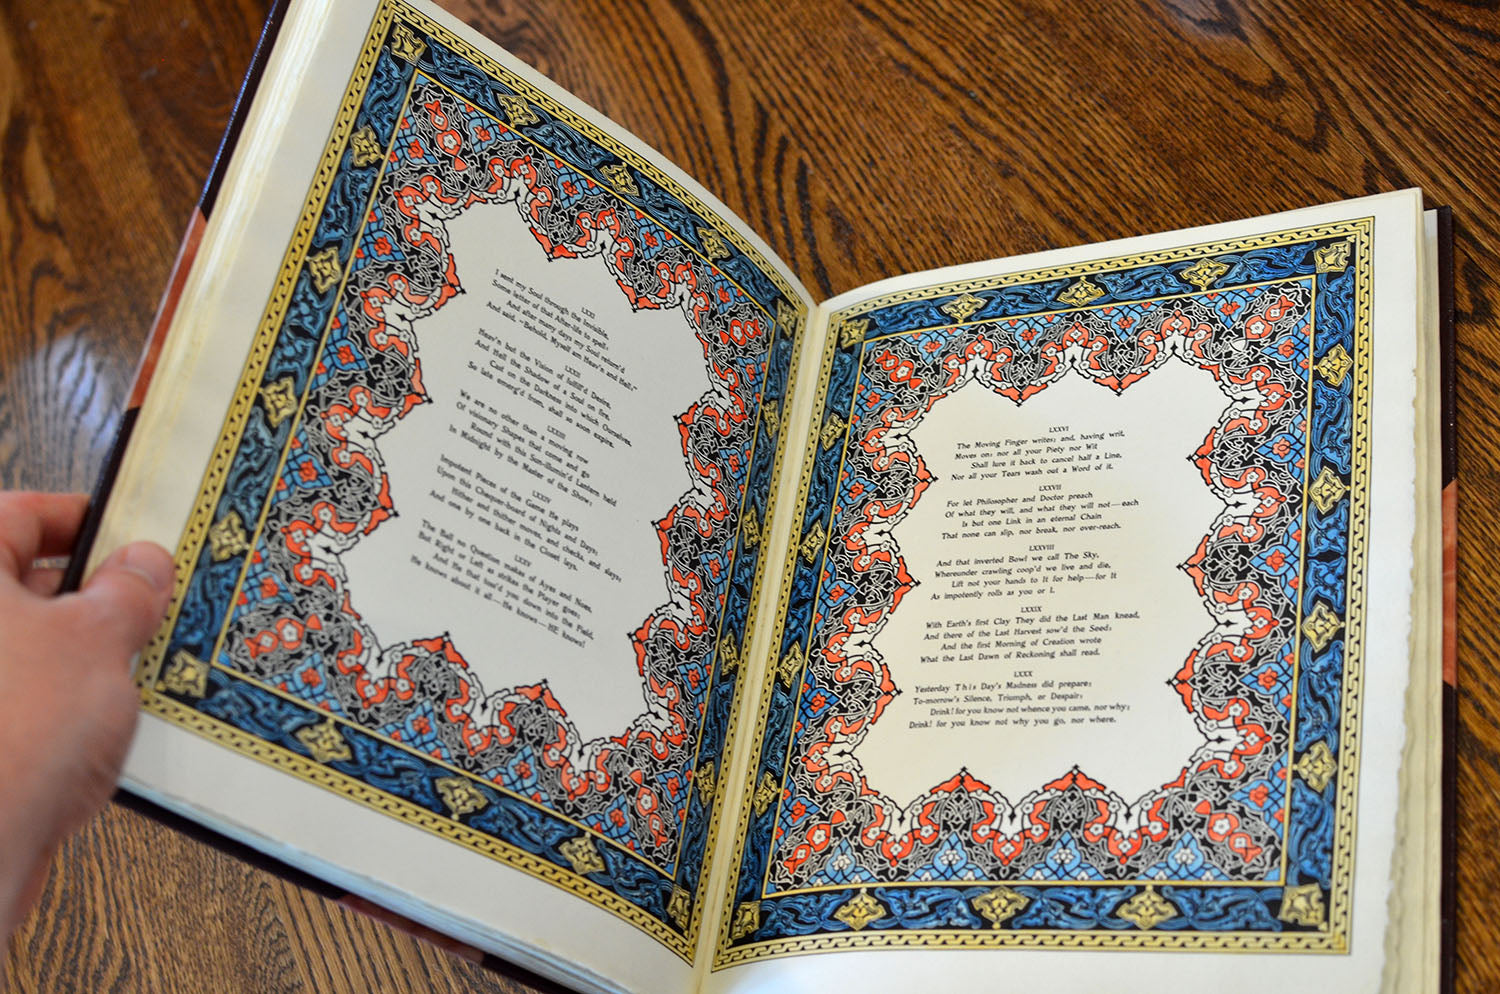 LXXI
I sent my Soul through the Invisible,
Some letter of that After-life to spell:
And after many days my Soul return'd
And said, "Behold, Myself am Heav'n and Hell."
LXXII
Heav'n but the Vision of fulfill'd Desire,
And Hell the Shadow of a Soul on fire,
Cast on the Darkness into which Ourselves,
So late emerg'd from, shall so soon expire.
LXXIII
We are no other than a moving row
Of visionary Shapes that come and go
Round with this Sun-illumin'd Lantern held
In Midnight by the Master of the Show;
LXXIV
Impotent Pieces of the Game He plays
Upon this Chequer-board of Nights and Days;
Hither and thither moves, and checks, and slays;
And one by one back in the Closet lays.
LXXV
The Ball no Question makes of Ayes and Noes,
But Right or Left as strikes the Player goes;
And He that toss'd you down into the Field,
He knows about it all—He knows—HE knows!
LXXVI
The Moving Finger writes; and, having writ,
Moves on: nor all your Piety nor Wit
Shall lure it back to cancel half a Line,
Nor all your Tears wash out a Word of it.
LXXVII
For let Philosopher and Doctor preach
Of what they will, and what they will not—each
Is but one Link in an eternal Chain
That none can slip, nor break, nor over-reach.
LXXVIII
And that inverted Bowl we call The Sky,
Whereunder crawling coop'd we live and die,
Lift not your hands to It for help—for It
As impotently rolls as you or I.
LXXIX
With Earth's first Clay They did the Last Man knead,
And there of the Last Harvest sow'd the Seed:
And the first Morning of Creation wrote
What the Last Dawn of Reckoning shall read.
LXXX
Yesterday This Day's Madness did prepare;
To-morrow's Silence, Triumph, or Despair:
Drink! for you know not whence you came, nor why;
Drink! for you know not why you go, nor where.